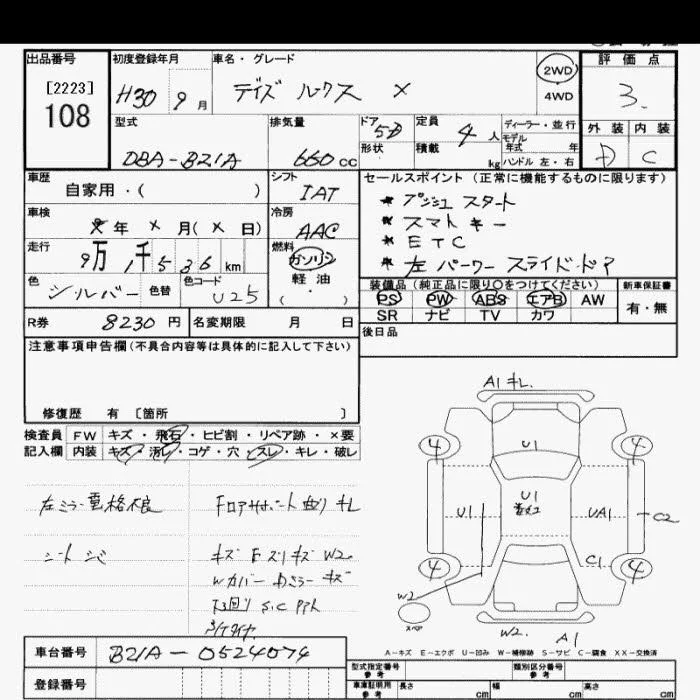 出品番号
[2223]
108
初度登録年月
H30 9月
車名・グレード
デイズ ルークス X
2WD
4WD
評価点
3.
外装 内装
D C
型式
DBA-B21A
排気量
660cc
ドア
5D
形状
定員
4人
積載
kg
ディーラー・並行
モデル
年式 年
ハンドル 左・右
車歴
自家用・( )
シフト
IAT
車検
X年 X月(X日)
冷房
AAC
走行
9万1千536km
燃料
ガソリン
軽油
( ・ )
色
シルバー
色替
色コード
U25
セールスポイント(正常に機能するものに限ります)
* プッシュスタート
* スマートキー
* ETC
* 左パワースライドドア
装備品(純正品に限り〇をつけてください)
PS PW ABS エアB AW
SR ナビ TV カワ
新車保証書
有・無
R券
8230円
名変期限 月 日
後日品
注意事項申告欄(不具合内容等は具体的に記入して下さい)
修復歴 有 〔箇所 〕
検査員
記入欄
FW キズ・飛石・ヒビ割・リペア跡・×要
内装 キズ・汚レ・コゲ・穴・スレ・キレ・破レ
左ミラー格格不良
シートシミ
フロアサポート曲り キレ
キズ Eズリキズ W2
Wカバー ミラーキズ
下回り S.C
A1 キレ
4
4
U1
U1
U1
UA1
C2
C1
4
4
W2
スペア
W2
A1
A-キズ E-エクボ U-凹み W-補修跡 S-サビ C-腐食 XX-交換済
車台番号
B21A-0524074
登録番号
型式指定番号
参考
類別区分番号
参考
車庫証明用
参考
長さ cm
幅 cm
高さ cm